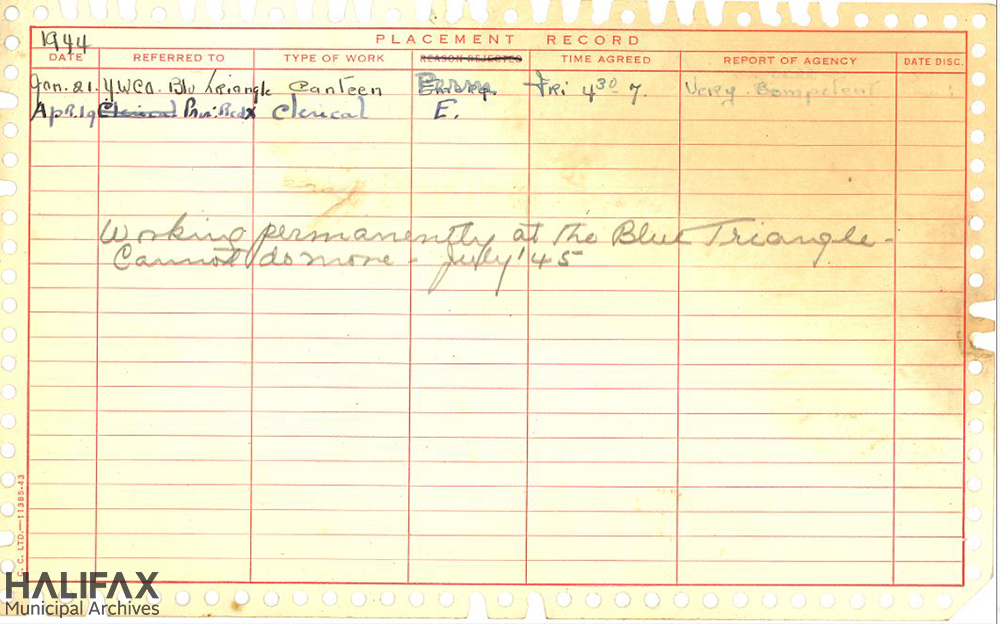 1944
PLACEMENT RECORD
DATE REFERRED TO TYPE OF WORK REASON REJECTED TIME AGREED REPORT OF AGENCY DATE DISC.
Jan. 21. YWCA. Blu Triangle Canteen Fri 4 30 7. Very Competent
Apr. 19 Clerical Pro. Redx Clerical E.
Working permanently at the Blue Triangle -
Cannot do more - July '45
C. C. LTD.—11385-43
HALIFAX
Municipal Archives